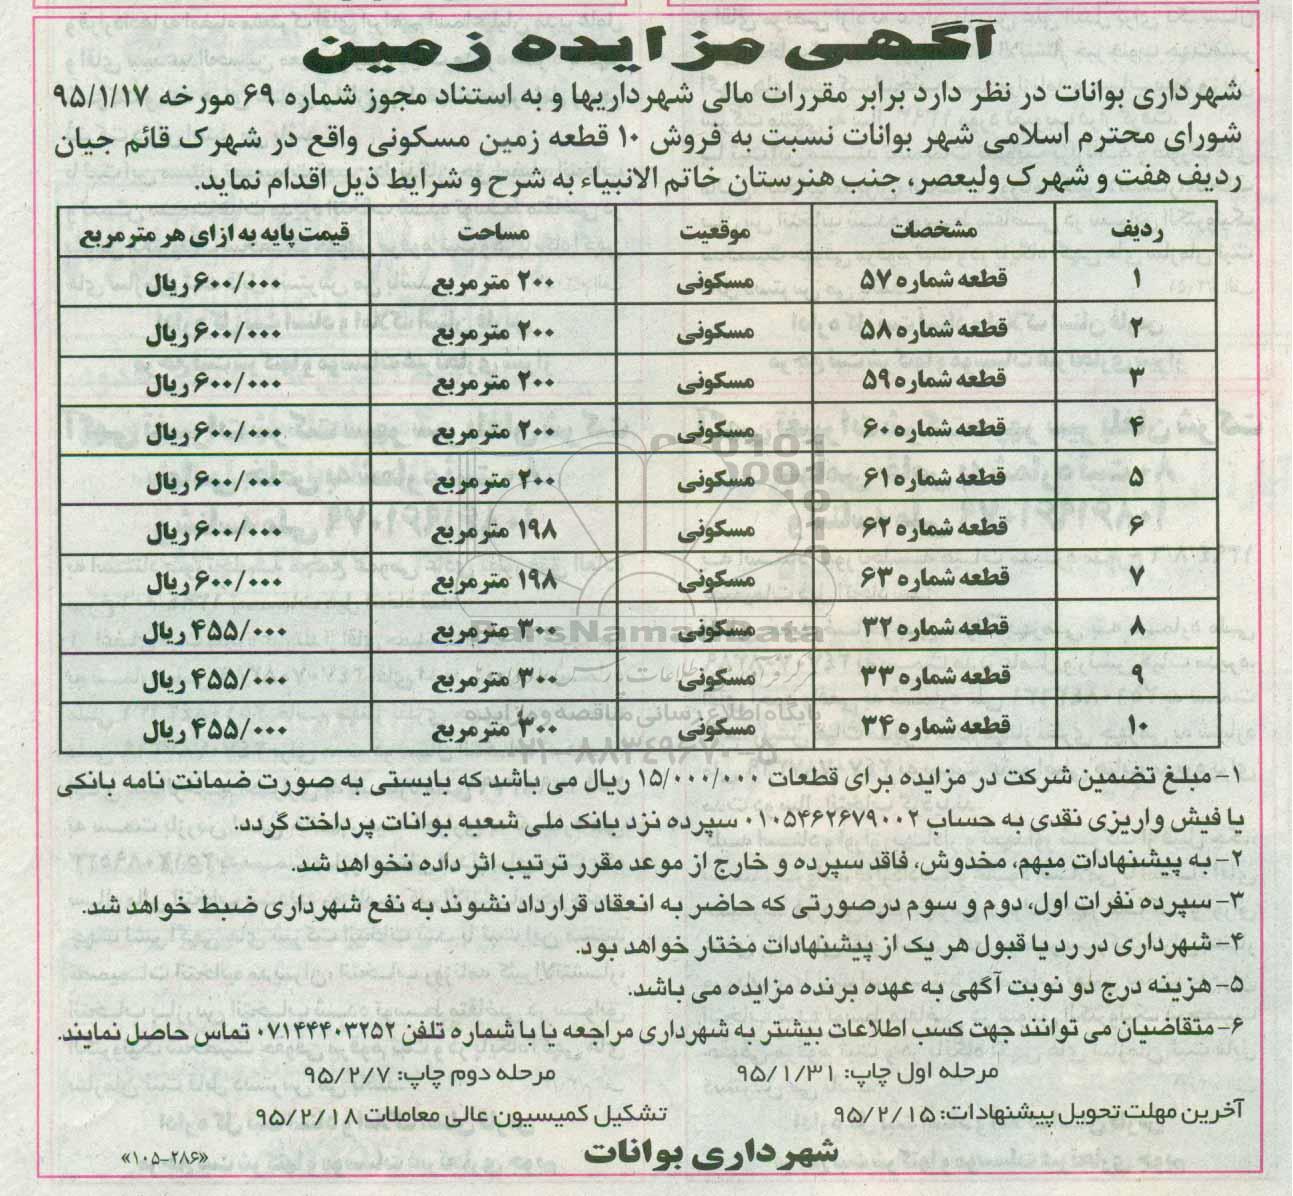 آگهی مزایده زمین
شهرداری بوانات در نظر دارد برابر مقررات مالی شهرداریها و به استناد مجوز شماره ۶۹ مورخه ۹۵/۱/۱۷
شورای محترم اسلامی شهر بوانات نسبت به فروش ۱۰ قطعه زمین مسکونی واقع در شهرک قائم جیان
ردیف هفت و شهرک ولیعصر، جنب هنرستان خاتم الانبیاء به شرح و شرایط ذیل اقدام نماید.
ردیف مشخصات موقعیت مساحت قیمت پایه به ازای هر مترمربع
۱ قطعه شماره ۵۷ مسکونی ۲۰۰ مترمربع ۶۰۰/۰۰۰ ریال
۲ قطعه شماره ۵۸ مسکونی ۲۰۰ مترمربع ۶۰۰/۰۰۰ ریال
۳ قطعه شماره ۵۹ مسکونی ۲۰۰ مترمربع ۶۰۰/۰۰۰ ریال
۴ قطعه شماره ۶۰ مسکونی ۲۰۰ مترمربع ۶۰۰/۰۰۰ ریال
۵ قطعه شماره ۶۱ مسکونی ۲۰۰ مترمربع ۶۰۰/۰۰۰ ریال
۶ قطعه شماره ۶۲ مسکونی ۱۹۸ مترمربع ۶۰۰/۰۰۰ ریال
۷ قطعه شماره ۶۳ مسکونی ۱۹۸ مترمربع ۶۰۰/۰۰۰ ریال
۸ قطعه شماره ۳۲ مسکونی ۳۰۰ مترمربع ۴۵۵/۰۰۰ ریال
۹ قطعه شماره ۳۳ مسکونی ۳۰۰ مترمربع ۴۵۵/۰۰۰ ریال
۱۰ قطعه شماره ۳۴ مسکونی ۳۰۰ مترمربع ۴۵۵/۰۰۰ ریال
ParsNamadData
پایگاه اطلاع رسانی مناقصه و مزایده
۰۲۱-۸۸۳۴۹۶۷۰-۵
۱- مبلغ تضمین شرکت در مزایده برای قطعات ۱۵/۰۰۰/۰۰۰ ریال می باشد که بایستی به صورت ضمانت نامه بانکی
یا فیش واریزی نقدی به حساب ۰۱۰۵۴۶۲۶۷۹۰۰۲ سپرده نزد بانک ملی شعبه بوانات پرداخت گردد.
۲- به پیشنهادات مبهم، مخدوش، فاقد سپرده و خارج از موعد مقرر ترتیب اثر داده نخواهد شد.
۳- سپرده نفرات اول، دوم و سوم درصورتی که حاضر به انعقاد قرارداد نشوند به نفع شهرداری ضبط خواهد شد.
۴- شهرداری در رد یا قبول هر یک از پیشنهادات مختار خواهد بود.
۵- هزینه درج دو نوبت آگهی به عهده برنده مزایده می باشد.
۶- متقاضیان می توانند جهت کسب اطلاعات بیشتر به شهرداری مراجعه یا با شماره تلفن ۰۷۱۴۴۴۰۳۲۵۲ تماس حاصل نمایند.
مرحله اول چاپ: ۹۵/۱/۳۱ مرحله دوم چاپ: ۹۵/۲/۷
آخرین مهلت تحویل پیشنهادات: ۹۵/۲/۱۵ تشکیل کمیسیون عالی معاملات ۹۵/۲/۱۸
شهرداری بوانات
«۱۰۵-۲۸۶»